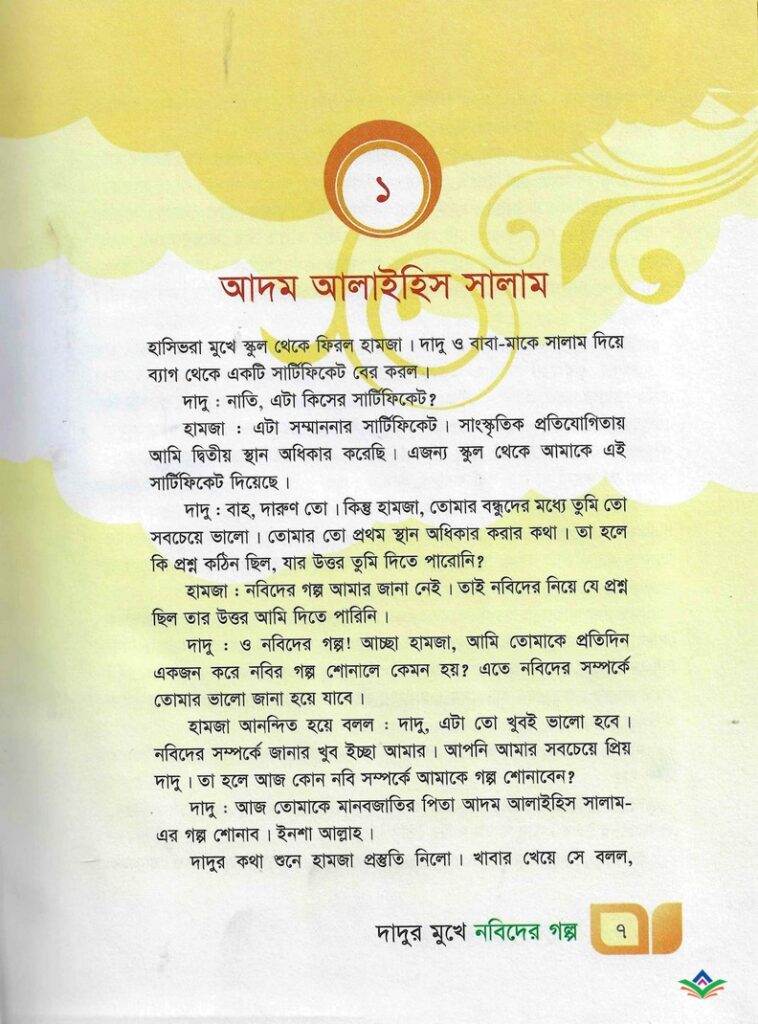 ১
আদম আলাইহিস সালাম
হাসিভরা মুখে স্কুল থেকে ফিরল হামজা। দাদু ও বাবা-মাকে সালাম দিয়ে
ব্যাগ থেকে একটি সার্টিফিকেট বের করল।
দাদু : নাতি, এটা কিসের সার্টিফিকেট?
হামজা : এটা সম্মাননার সার্টিফিকেট। সাংস্কৃতিক প্রতিযোগিতায়
আমি দ্বিতীয় স্থান অধিকার করেছি। এজন্য স্কুল থেকে আমাকে এই
সার্টিফিকেট দিয়েছে।
দাদু : বাহ, দারুণ তো। কিন্তু হামজা, তোমার বন্ধুদের মধ্যে তুমি তো
সবচেয়ে ভালো। তোমার তো প্রথম স্থান অধিকার করার কথা। তা হলে
কি প্রশ্ন কঠিন ছিল, যার উত্তর তুমি দিতে পারোনি?
হামজা : নবিদের গল্প আমার জানা নেই। তাই নবিদের নিয়ে যে প্রশ্ন
ছিল তার উত্তর আমি দিতে পারিনি।
দাদু : ও নবিদের গল্প! আচ্ছা হামজা, আমি তোমাকে প্রতিদিন
একজন করে নবির গল্প শোনালে কেমন হয়? এতে নবিদের সম্পর্কে
তোমার ভালো জানা হয়ে যাবে।
হামজা আনন্দিত হয়ে বলল : দাদু, এটা তো খুবই ভালো হবে।
নবিদের সম্পর্কে জানার খুব ইচ্ছা আমার। আপনি আমার সবচেয়ে প্রিয়
দাদু। তা হলে আজ কোন নবি সম্পর্কে আমাকে গল্প শোনাবেন?
দাদু : আজ তোমাকে মানবজাতির পিতা আদম আলাইহিস সালাম-
এর গল্প শোনাব। ইনশা আল্লাহ।
দাদুর কথা শুনে হামজা প্রস্তুতি নিলো। খাবার খেয়ে সে বলল,
দাদুর মুখে নবিদের গল্প ৭